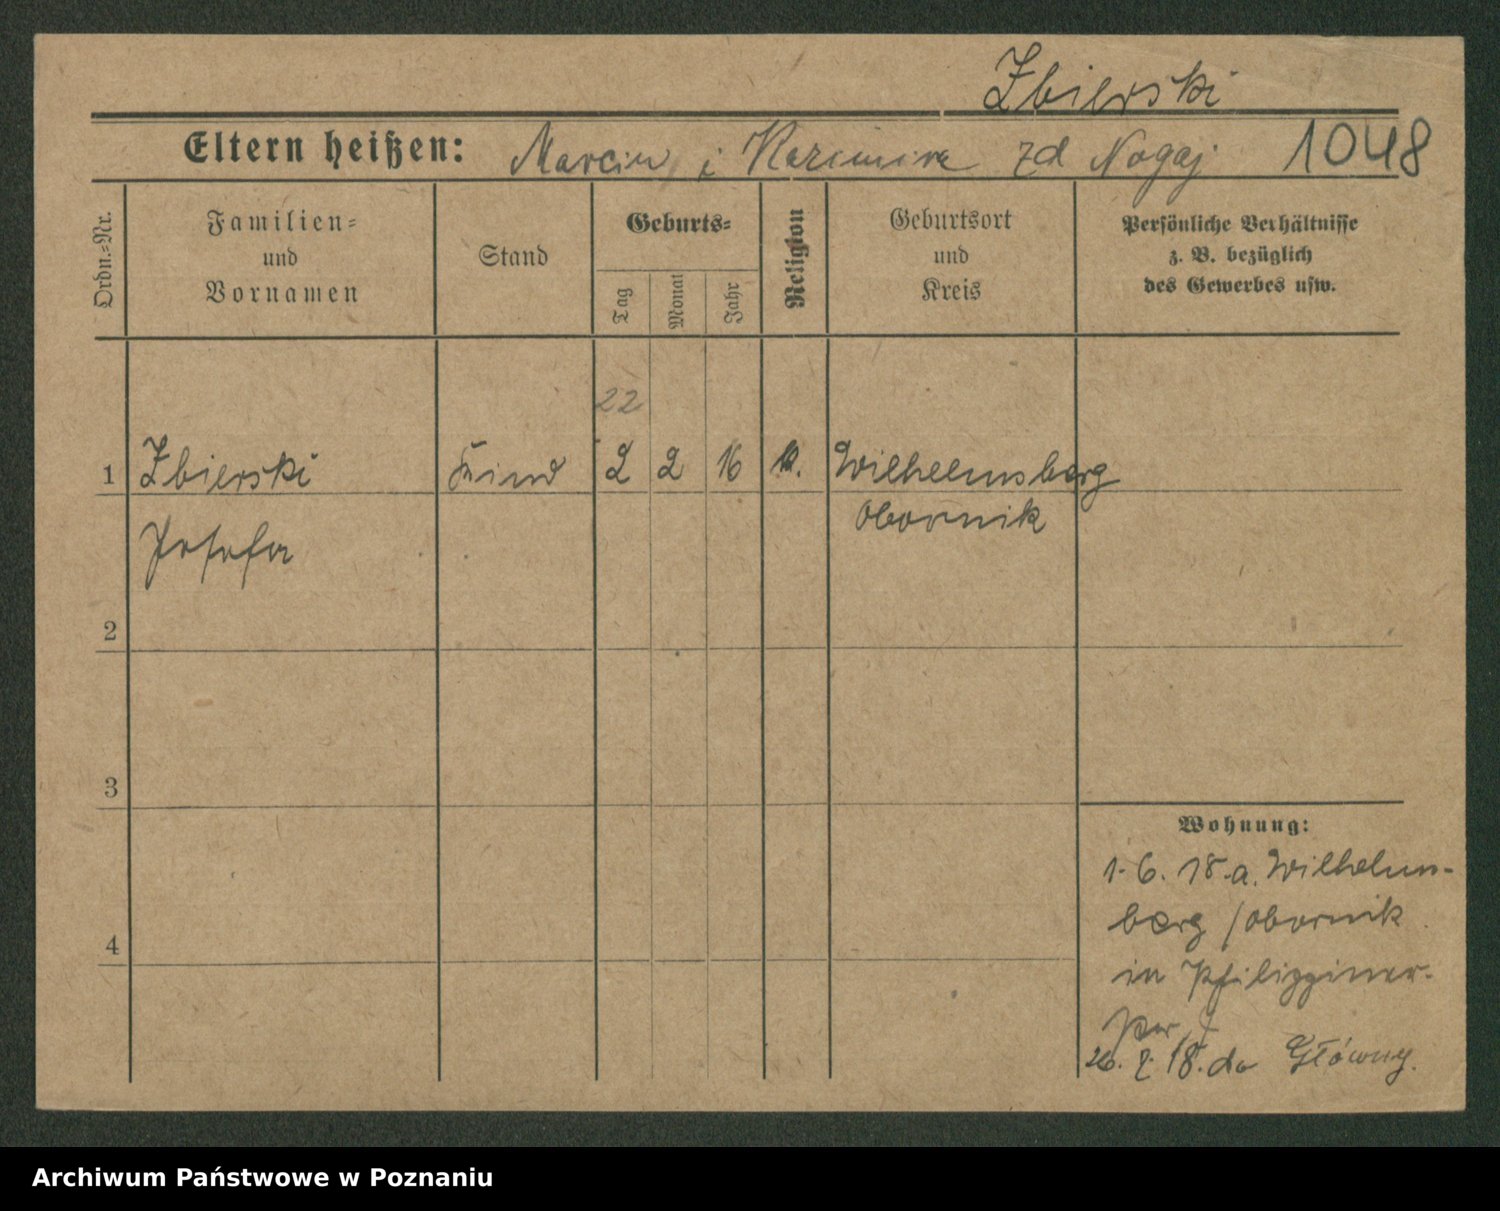 Zbierski
Eltern heißen: Marcin i Kazimira zd Nogaj 1048
Ordn.=Nr.
Familien=
und
Vornamen
Stand
Geburts=
Tag
Monat
Jahr
Religion
Geburtsort
und
Kreis
Persönliche Verhältnisse
z. B. bezüglich
des Gewerbes usw.
22
1 Zbierski Kind 2 2 16 k. Wilhelmsberg
Obornik
Josefa
2
3
4
Wohnung:
1. 6. 18. a. Wilhelms-
berg / Obornik
in
26. 7. 18. do Główny.
Archiwum Państwowe w Poznaniu